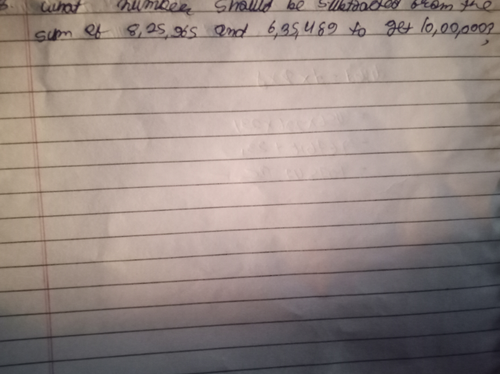 what number should be subtracted from the
sum of 8,25,265 and 6,35,489 to get 10,00,000?